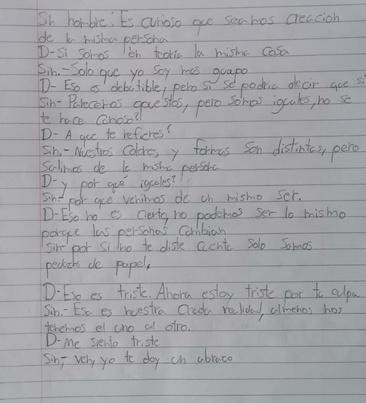 Sin hombre: Es curioso que seamos creación
de la misma persona
D-Si somos en teoria la misma cosa
Sin.-Solo que yo soy mas guapo
D- Eso es debatible, pero si se podria decir que si
Sin- Parecemos opuestos, pero somos iguales, no se
te hace curioso?
D- A que te refieres?
Sin.- Nuestros colores, y formas son distintas, pero
salimos de la misma persona
D-y por que iguales?
Sin- por que venimos de un mismo ser.
D-Eso no es cierto, no podemos ser lo mismo
porque las personas cambian
Sin- por si no te diste cuenta solo somos
pedazos de papel,
D-Eso es triste. Ahora estoy triste por tu culpa
Sin.- Esa es nuestra cruda realidad, almenos nos
tenemos el uno al otro.
D-Me siento triste
Sin,- Ven, yo te doy un abrazo